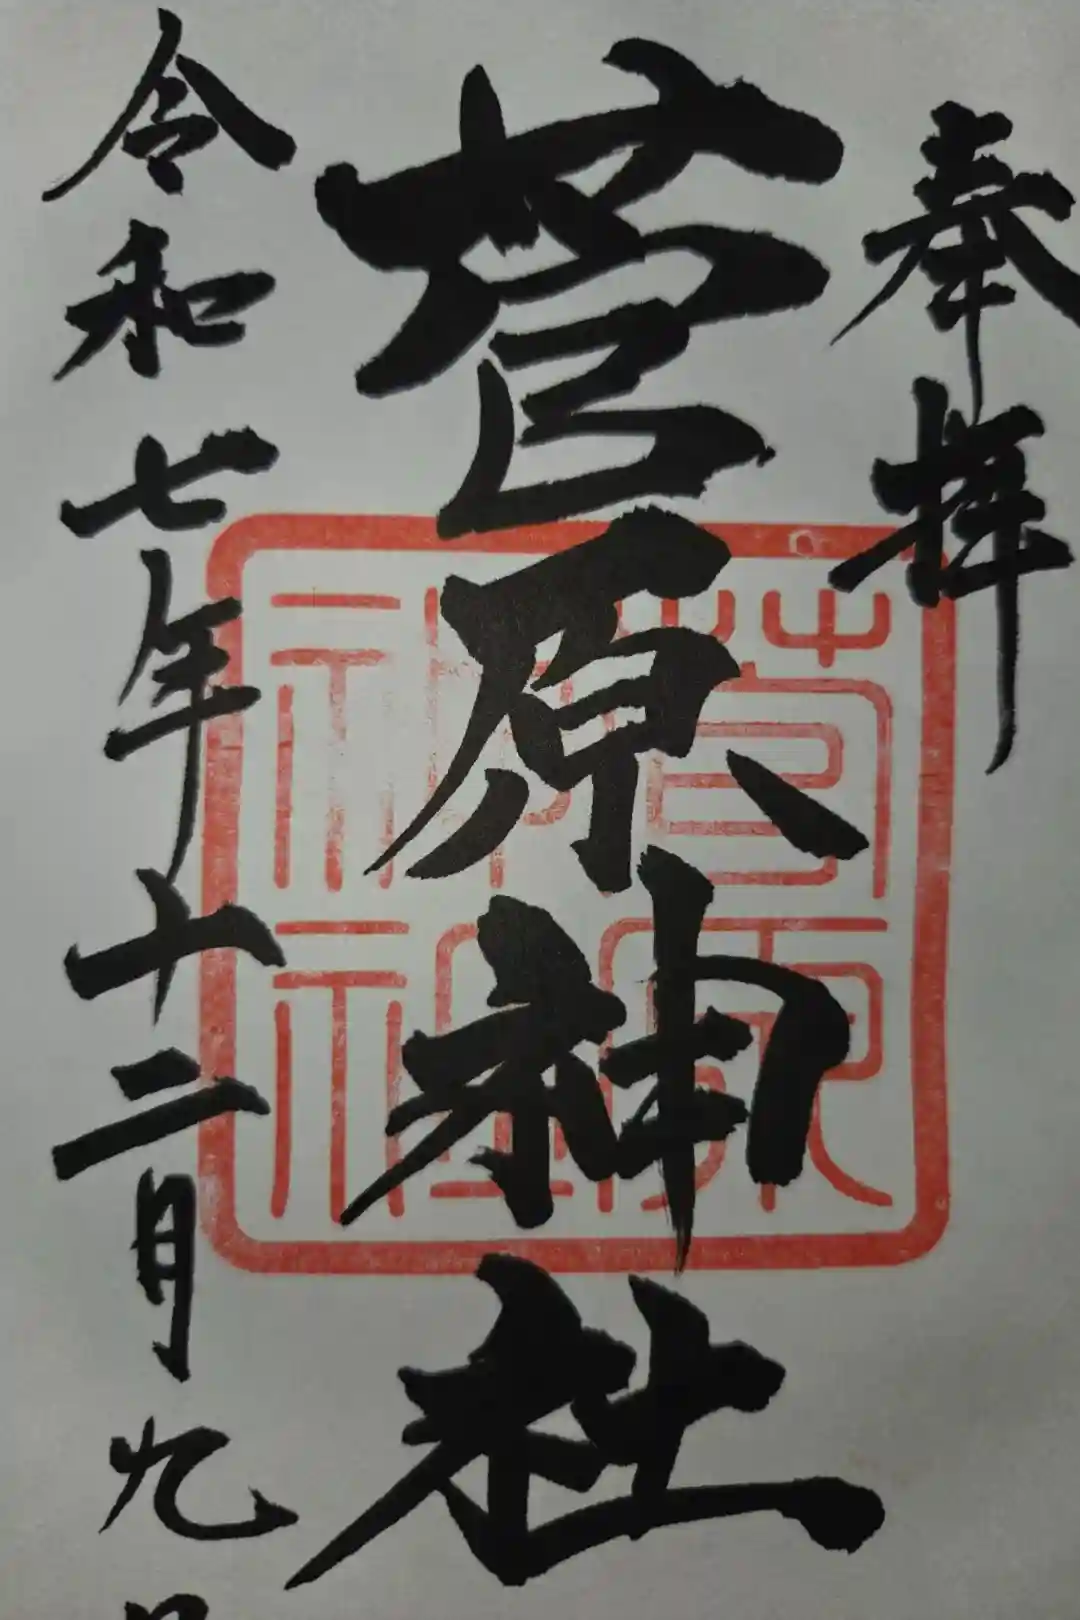 奉拝
菅原神社
菅原神社
令和七年十二月九日